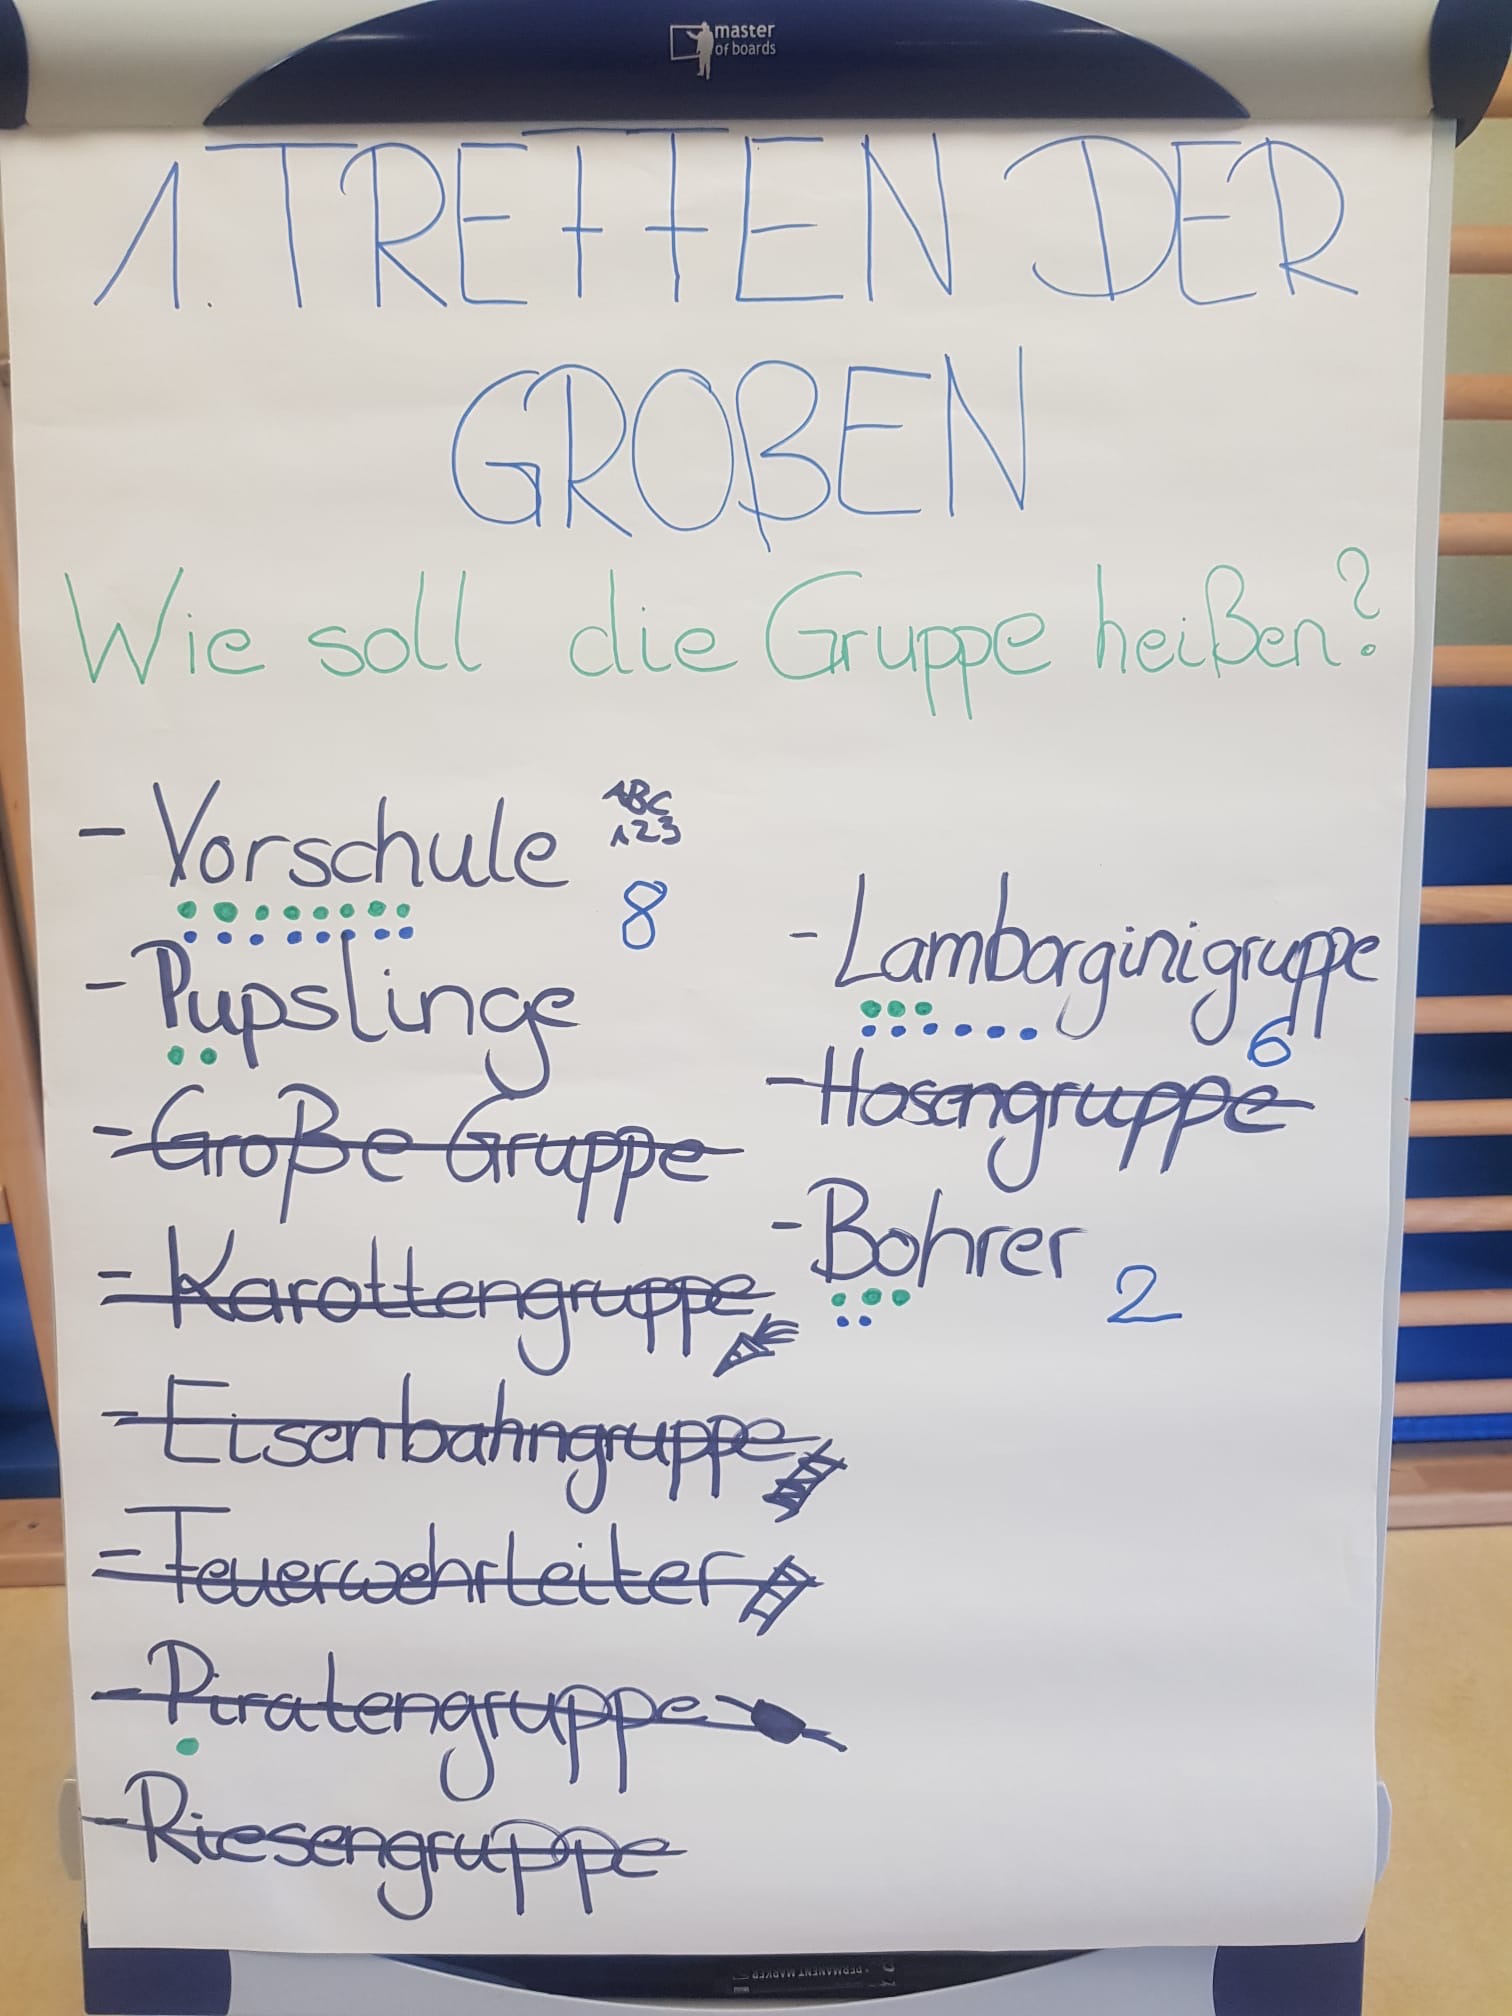 master
of boards
1. TREFFEN DER
GROßEN
Wie soll die Gruppe heißen?
- Vorschule
ABC
123
8
- Pupslinge
- Große Gruppe
- Karottengruppe
- Eisenbahngruppe
- Feuerwehrleiter
- Piratengruppe
- Riesengruppe
- Lamborginigruppe
6
- Hosengruppe
- Bohrer
2
PERMANENT MARKER